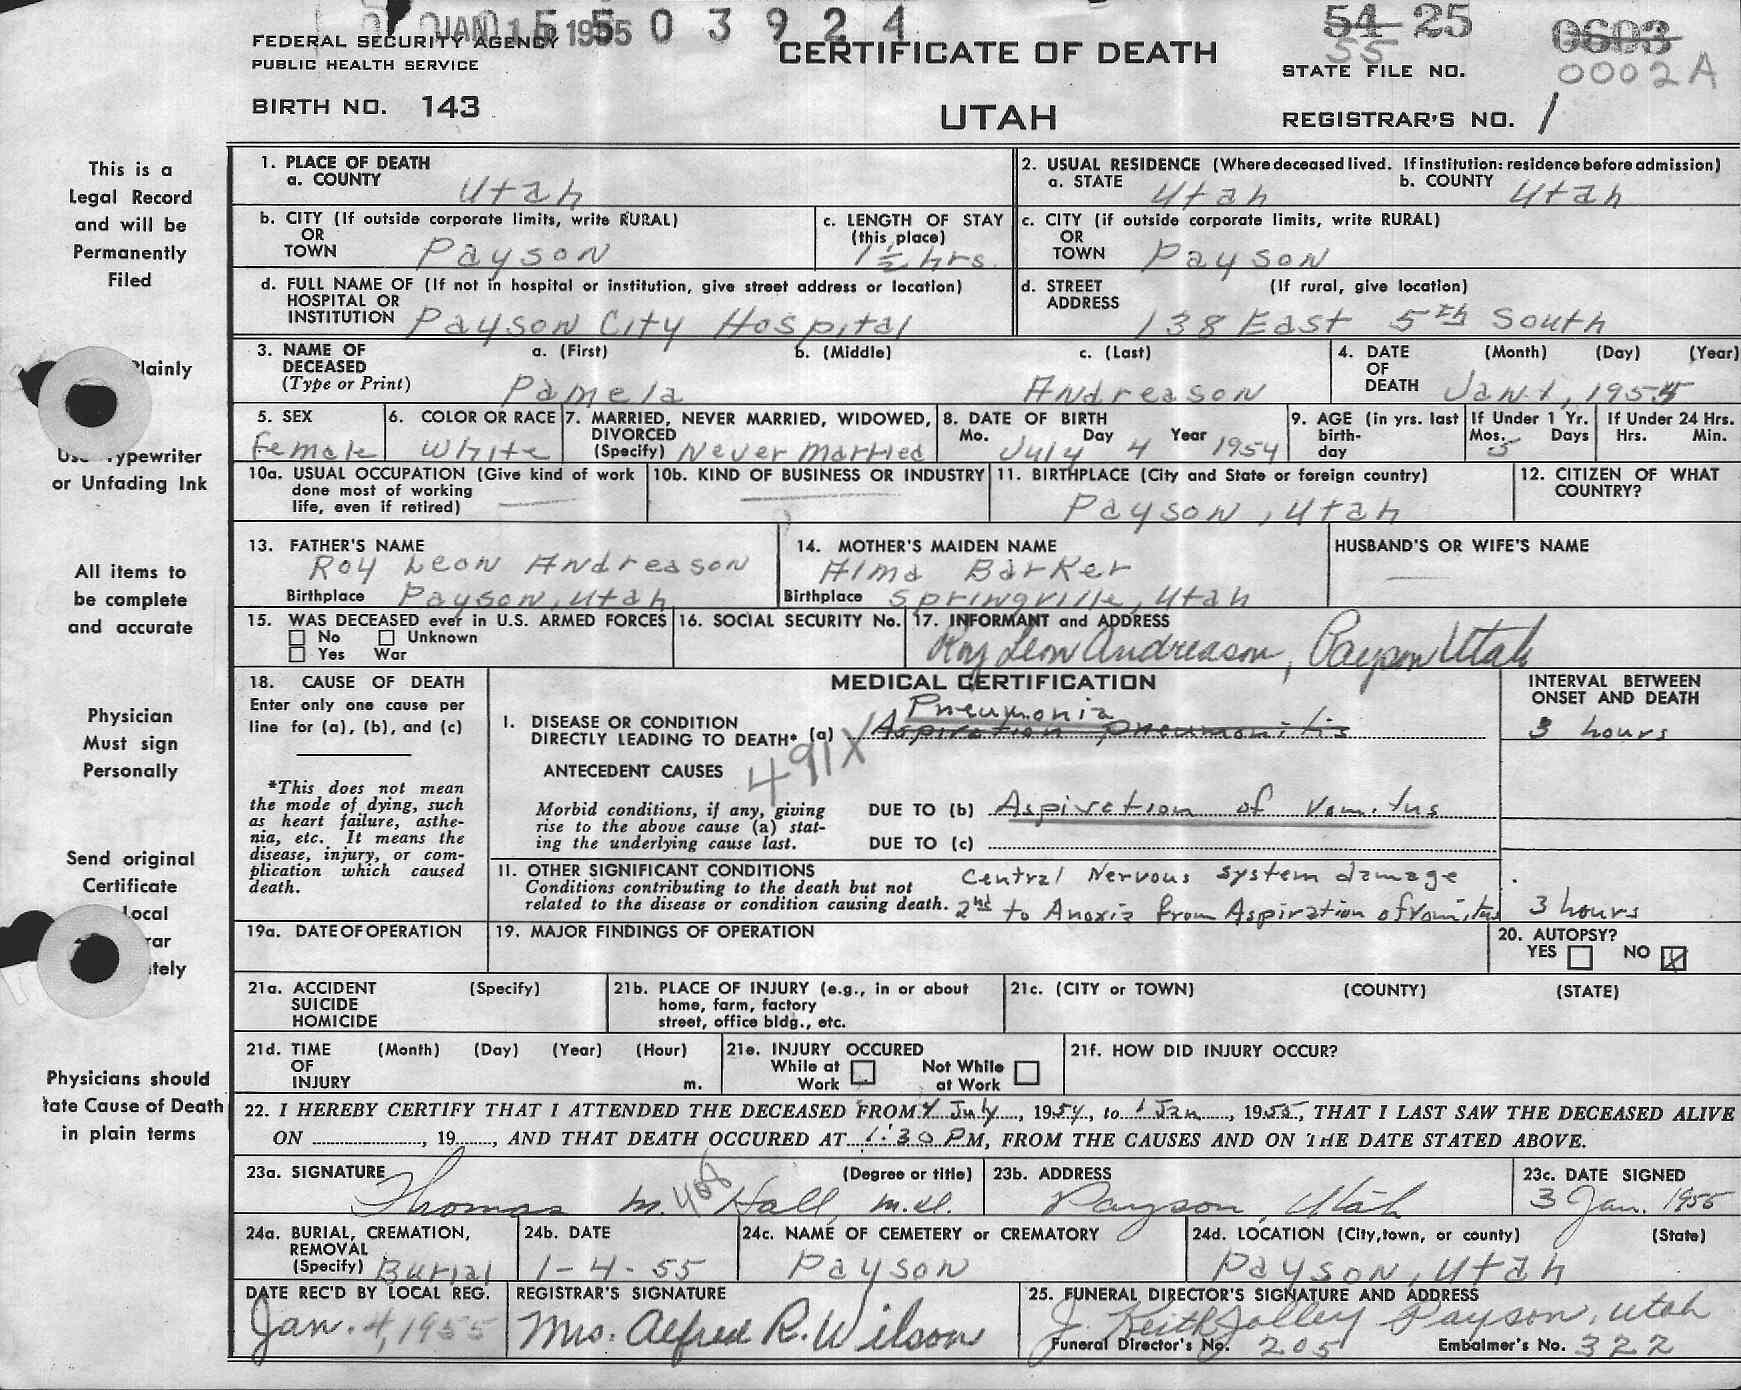 JAN 1 5 1955 5 0 3 9 2 4
54 25
0603
FEDERAL SECURITY AGENCY
PUBLIC HEALTH SERVICE
CERTIFICATE OF DEATH
55
STATE FILE NO. 0002A
BIRTH NO. 143
UTAH
REGISTRAR'S NO. 1
This is a
Legal Record
and will be
Permanently
Filed
Plainly
Use Typewriter
or Unfading Ink
All items to
be complete
and accurate
Physician
Must sign
Personally
Send original
Certificate
Local
rar
tely
Physicians should
tate Cause of Death
in plain terms
1. PLACE OF DEATH
a. COUNTY Utah
2. USUAL RESIDENCE (Where deceased lived. If institution: residence before admission)
a. STATE Utah b. COUNTY Utah
b. CITY (If outside corporate limits, write RURAL)
OR
TOWN Payson
c. LENGTH OF STAY
(this place)
1 1/2 hrs.
c. CITY (if outside corporate limits, write RURAL)
OR
TOWN Payson
d. FULL NAME OF (If not in hospital or institution, give street address or location)
HOSPITAL OR
INSTITUTION Payson City Hospital
d. STREET (If rural, give location)
ADDRESS
138 East 5th South
3. NAME OF a. (First) b. (Middle) c. (Last)
DECEASED
(Type or Print) Pamela Andreason
4. DATE (Month) (Day) (Year)
OF
DEATH Jan 1, 1955
5. SEX
Female
6. COLOR OR RACE
White
7. MARRIED, NEVER MARRIED, WIDOWED,
DIVORCED
(Specify) Never Married
8. DATE OF BIRTH
Mo. Day Year
July 4 1954
9. AGE (in yrs. last
birth-
day
If Under 1 Yr.
Mos. Days
5
If Under 24 Hrs.
Hrs. Min.
10a. USUAL OCCUPATION (Give kind of work
done most of working
life, even if retired)
10b. KIND OF BUSINESS OR INDUSTRY
11. BIRTHPLACE (City and State or foreign country)
Payson, Utah
12. CITIZEN OF WHAT
COUNTRY?
13. FATHER'S NAME
Roy Leon Andreason
Birthplace Payson, Utah
14. MOTHER'S MAIDEN NAME
Alma Barker
Birthplace Springville, Utah
HUSBAND'S OR WIFE'S NAME
15. WAS DECEASED ever in U.S. ARMED FORCES
No Unknown
Yes War
16. SOCIAL SECURITY No.
17. INFORMANT and ADDRESS
Roy Leon Andreason, Payson Utah
18. CAUSE OF DEATH
Enter only one cause per
line for (a), (b), and (c)
*This does not mean
the mode of dying, such
as heart failure, asthe-
nia, etc. It means the
disease, injury, or com-
plication which caused
death.
MEDICAL CERTIFICATION
INTERVAL BETWEEN
ONSET AND DEATH
Pneumonia
I. DISEASE OR CONDITION
DIRECTLY LEADING TO DEATH* (a) Aspiration pneumonitis 3 hours
491X
ANTECEDENT CAUSES
Morbid conditions, if any, giving
rise to the above cause (a) stat-
ing the underlying cause last.
DUE TO (b) Aspiration of Vomitus
DUE TO (c)
II. OTHER SIGNIFICANT CONDITIONS
Conditions contributing to the death but not
related to the disease or condition causing death.
Central Nervous system damage
2nd to Anoxia from Aspiration of vomitus 3 hours
19a. DATE OF OPERATION
19. MAJOR FINDINGS OF OPERATION
20. AUTOPSY?
YES NO
21a. ACCIDENT (Specify)
SUICIDE
HOMICIDE
21b. PLACE OF INJURY (e.g., in or about
home, farm, factory
street, office bldg., etc.
21c. (CITY or TOWN) (COUNTY) (STATE)
21d. TIME (Month) (Day) (Year) (Hour)
OF
INJURY m.
21e. INJURY OCCURED
While at Work Not While at Work
21f. HOW DID INJURY OCCUR?
22. I HEREBY CERTIFY THAT I ATTENDED THE DECEASED FROM 4 July, 1954, to 1 Jan, 1955, THAT I LAST SAW THE DECEASED ALIVE
ON ............, 19......, AND THAT DEATH OCCURED AT 1:30 PM, FROM THE CAUSES AND ON THE DATE STATED ABOVE.
23a. SIGNATURE (Degree or title)
Thomas M. Hall, M.D.
468
23b. ADDRESS
Payson, Utah
23c. DATE SIGNED
3 Jan. 1955
24a. BURIAL, CREMATION,
REMOVAL
(Specify) Burial
24b. DATE
1-4-55
24c. NAME OF CEMETERY OR CREMATORY
Payson
24d. LOCATION (City, town, or county) (State)
Payson, Utah
DATE REC'D BY LOCAL REG.
Jan. 4, 1955
REGISTRAR'S SIGNATURE
Mrs. Alfred R. Wilson
25. FUNERAL DIRECTOR'S SIGNATURE AND ADDRESS
J. Keith Jolley Payson, Utah
Funeral Director's No. 205 Embalmer's No. 322